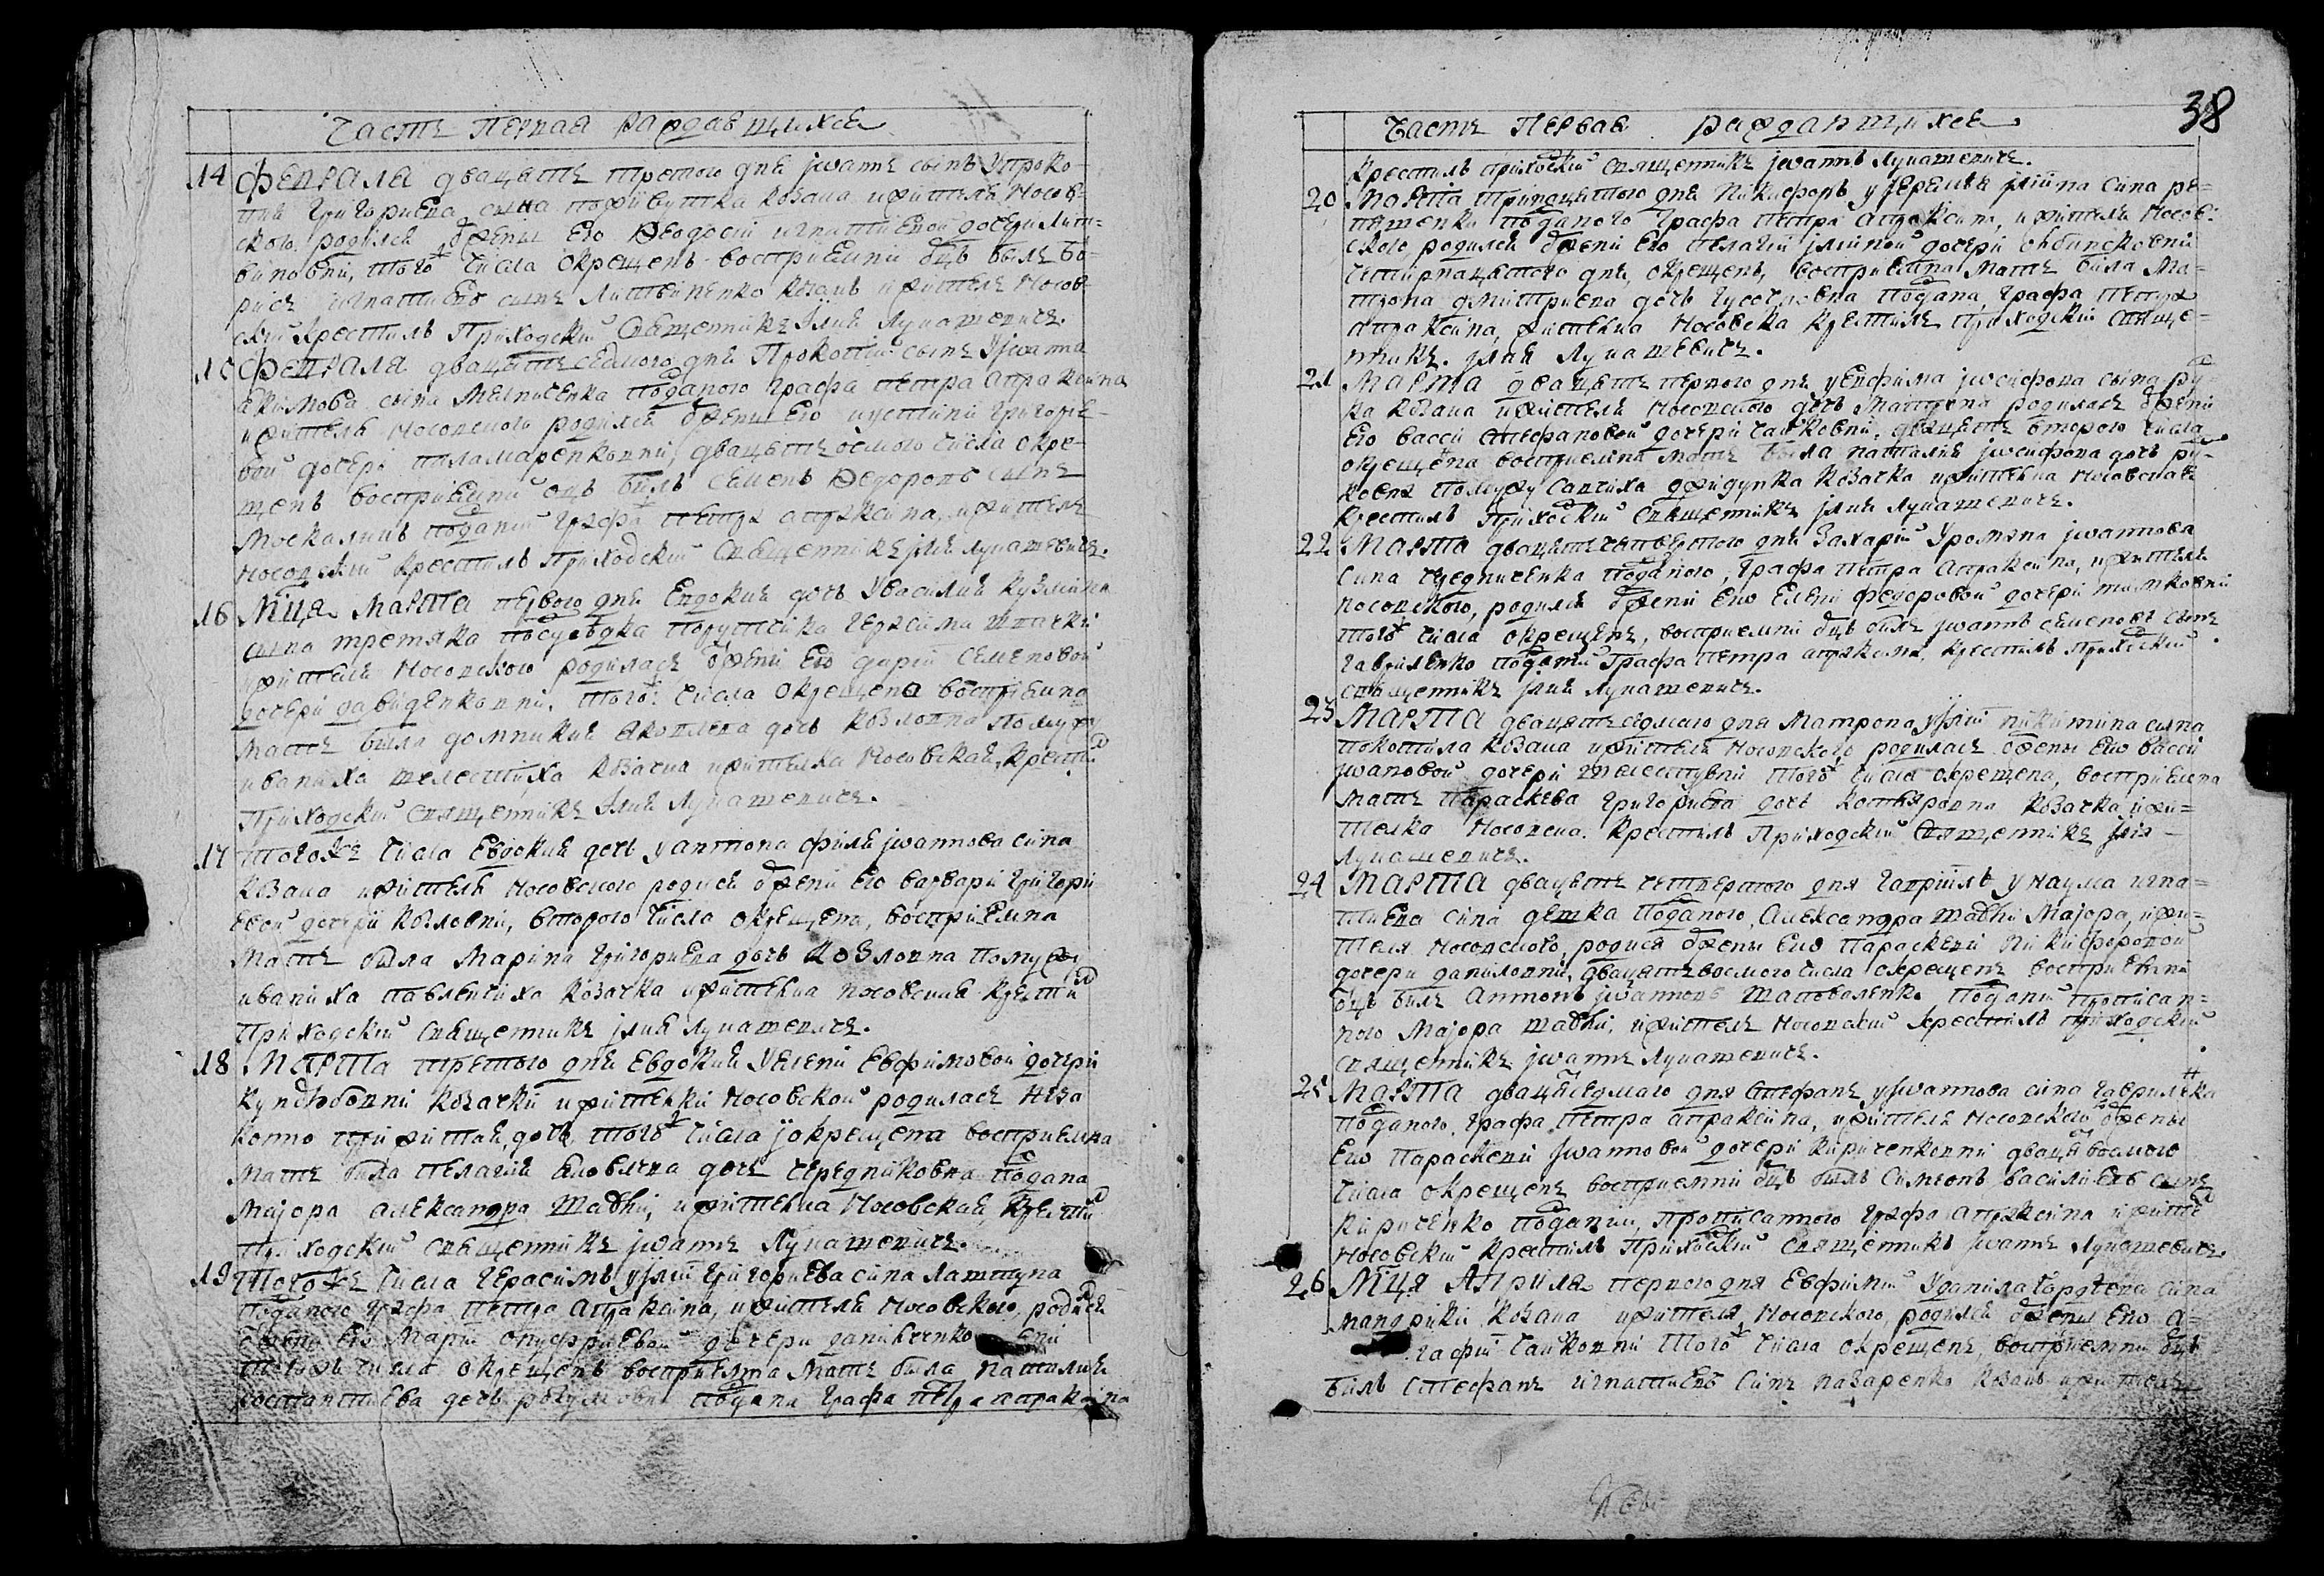 Часть Первая раждавшихся
14 Февраля дващать третого дня Іѡаннъ сынъ У Проко-
пия Григориева сына козака и жителя Носов-
ского, родился ѿ жены его Феодосии Игнатиевой дочери Лит-
виновни, того ж числа окрещенъ восприемний ѿцъ былъ Бо-
рисъ Игнатиевъ сынъ Литвиненко козакъ и житель Носов-
ский крестилъ Приходский Священникъ Илия Лукашевичъ.
15 Февраля дващать седмого дня Прокопий сынъ У Іѡанна
Акимова сына подданого Графа Петра Апраксина
и жителя Носовского родился ѿ жены его Иустинии Григорие-
вой дочери Паламаренковни, дващать осмого числа окре-
щенъ восприемний ѿцъ былъ Семенъ Федоровъ сынъ
Москалецъ подданий Графа Петра Апраксина, и житель
Носовский крестилъ Приходский Священникъ Илия Лукашевичъ.
16 Мѣсяца Марта первого дня Евдокия дочь У Василия Кузмина
сына Третяка посудка порутчика Герасима
жителя Носовского родилась ѿ жены его Дарии Семеновой
дочери Давиденковни, того ж числа окрещена восприемна
мать была Домникия Яковлева дочь Козловна по мужу
Иваниха Шелестиха козачка и жителка Носовская, крести
Приходский Священникъ Илия Лукашевичъ.
17 Того же числа Евдокия дочь у Антона Филя Іѡаннова сына
козака и жителя Носовского родися ѿ жени его Варвари Григори
евой дочери Козловни, второго числа окрещена, восприемна
мать была Марина Григориева дочь Козловна по мужу
Иваниха Павленчиха козачка и жителка Носовская крести
Приходский Священникъ Илия Лукашевичъ.
18 Марта третого дня Евдокия У Елени Евфимовой дочери
козачки и жителки Носовской родилась неза
конно прижитая дочь, того ж числа и окрещена восприемна
мать была Пелагия Яковлева дочь Чередниковна поддана
Маіора Александра Шадни, и жителка Носовская, крести
Приходский Священникъ Іѡаннъ Лукашевичъ.
19 Того же числа Герасимъ у Илии Григориева сина Латтуна
подданого Графа Петра Апраксина, и жителя Носовского, родися
ѿ жени его Марии Онуфриевой дочери Данилченковни
того ж числа окрещенъ восприемна мать была Наталия
Костантиева дочь поддана Графа Петра Апраксина
38
Часть Первая раждавшихся
крестилъ приходский Священникъ Іѡаннъ Лукашевичъ.
20 Марта тринацатого дня Никифоръ у Иеремия Илиина сина Ре-
подданого Графа Петра Апраксина, и жителя Носов-
ского, родился ѿ жени его Пелагии Илиной дочери
четирнацатого дня, окрещенъ, восприемна мать била Ма-
трона Димитриева дочь поддана, Графа Петра
Апраксина, жителка Носовска крестилъ Приходский Священ-
никъ Илия Лукашевичъ.
21 Марта дващать первого дня у Евфима Іѡсифова сына Ру-
ка козака и жителя Носовского дочь Матрона родилась ѿ жени
его Васси Стефановой дочери Чайковни, дващать второго числа
окрещена восприемна мать была Наталия Іѡсифова дочь Ру-
ковна по мужу козачка и жителка Носовская
крестилъ Приходский Священникъ Илия Лукашевичъ.
22 Марта дващать четвертого дня Захарий У Романа Іѡаннова
сина Чередниченка подданого, Графа Петра Апраксина, и жителя
Носовского, родился ѿ жени его Елени Федоровой дочери
того ж числа окрещенъ, восприемний ѿцъ билъ Іѡаннъ Семеновъ сынъ
Гавриленко подданий Графа Петра Апраксина, крестилъ Приходский
Священникъ Илия Лукашевичъ.
23 Марта дващать седмого дня Матрона, у Илии Никитина сына
Покотила козака и жителя Носовского, родилась ѿ жены его Васси
Іѡановой дочери Шелестувни того ж числа окрещена, восприемна
мать Параскева Григориева дочь козачка и жи-
телка Носовска. Крестилъ Приходский Священникъ Илия
Лукашевичъ.
24 Марта дващать четвертого дня Гавриилъ у Наума Игна-
тиева сина подданого, Александра Шадни Маіора, и жи-
теля Носовского, родися ѿ жены его Параскевии Никифоровой
дочери Даниловни, дващать восмого числа окрещенъ восприемний
ѿцъ билъ Антонъ Іѡанновъ Шаповаленко подданий прописан-
ного Маіора Шадни, и житель Носовский крестилъ Приходский
Священникъ Іѡаннъ Лукашевичъ.
25 Марта дващать седмого дня Стефанъ у Іѡаннова сина Гавриленка
подданого, Графа Петра Апраксина, и жителя Носовского ѿ жены
его Параскевии Іѡанновой дочери Кириченковни дващать восмого
числа окрещенъ восприемний ѿцъ билъ Симеонъ Василиевъ сынъ
Кириченко подданий, прописанного Графа Апраксина и жите
Носовский крестилъ Приходский Священникъ Іѡаннъ Лукашевичъ
26 Мѣсяца Априля первого дня Евфимий У Данила Гордеева сина
Мандрики козака и жителя Носовского, родился ѿ жены его А-
гафии Чайковни того ж числа окрещенъ, восприемний ѿцъ
билъ Стефанъ Игнатиевъ синъ Назаренко козакъ и житель